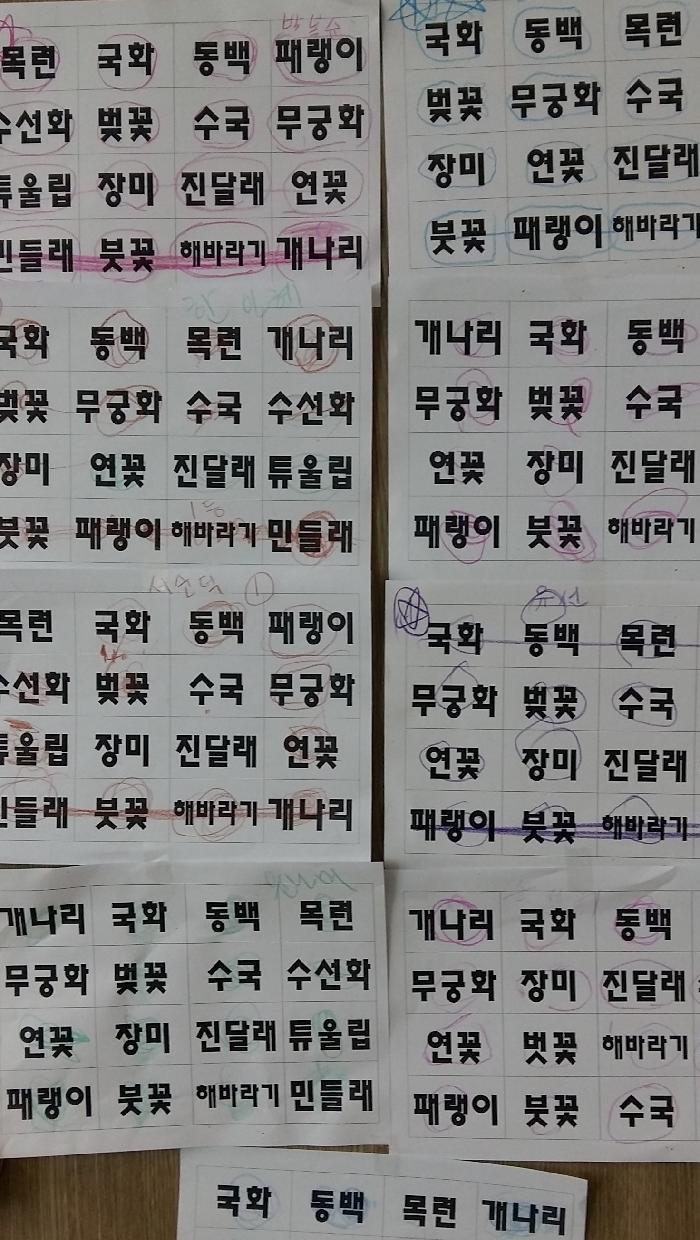 목련 국화 동백 패랭이
수선화 벚꽃 수국 무궁화
튜울립 장미 진달래 연꽃
민들레 붓꽃 해바라기 개나리
국화 동백 목련
벚꽃 무궁화 수국
장미 연꽃 진달래
붓꽃 패랭이 해바라기
국화 동백 목련 개나리
벚꽃 무궁화 수국 수선화
장미 연꽃 진달래 튜울립
1등
붓꽃 패랭이 해바라기 민들레
개나리 국화 동백
무궁화 벚꽃 수국
연꽃 장미 진달래
패랭이 붓꽃 해바라기
서순덕 ①
목련 국화 동백 패랭이
수선화 벚꽃 수국 무궁화
튜울립 장미 진달래 연꽃
민들레 붓꽃 해바라기 개나리
국화 동백 목련
무궁화 벚꽃 수국
연꽃 장미 진달래
패랭이 붓꽃 해바라기
개나리 국화 동백 목련
무궁화 벚꽃 수국 수선화
연꽃 장미 진달래 튜울립
패랭이 붓꽃 해바라기 민들레
개나리 국화 동백
무궁화 장미 진달래
연꽃 벗꽃 해바라기
패랭이 붓꽃 수국
국화 동백 목련 개나리